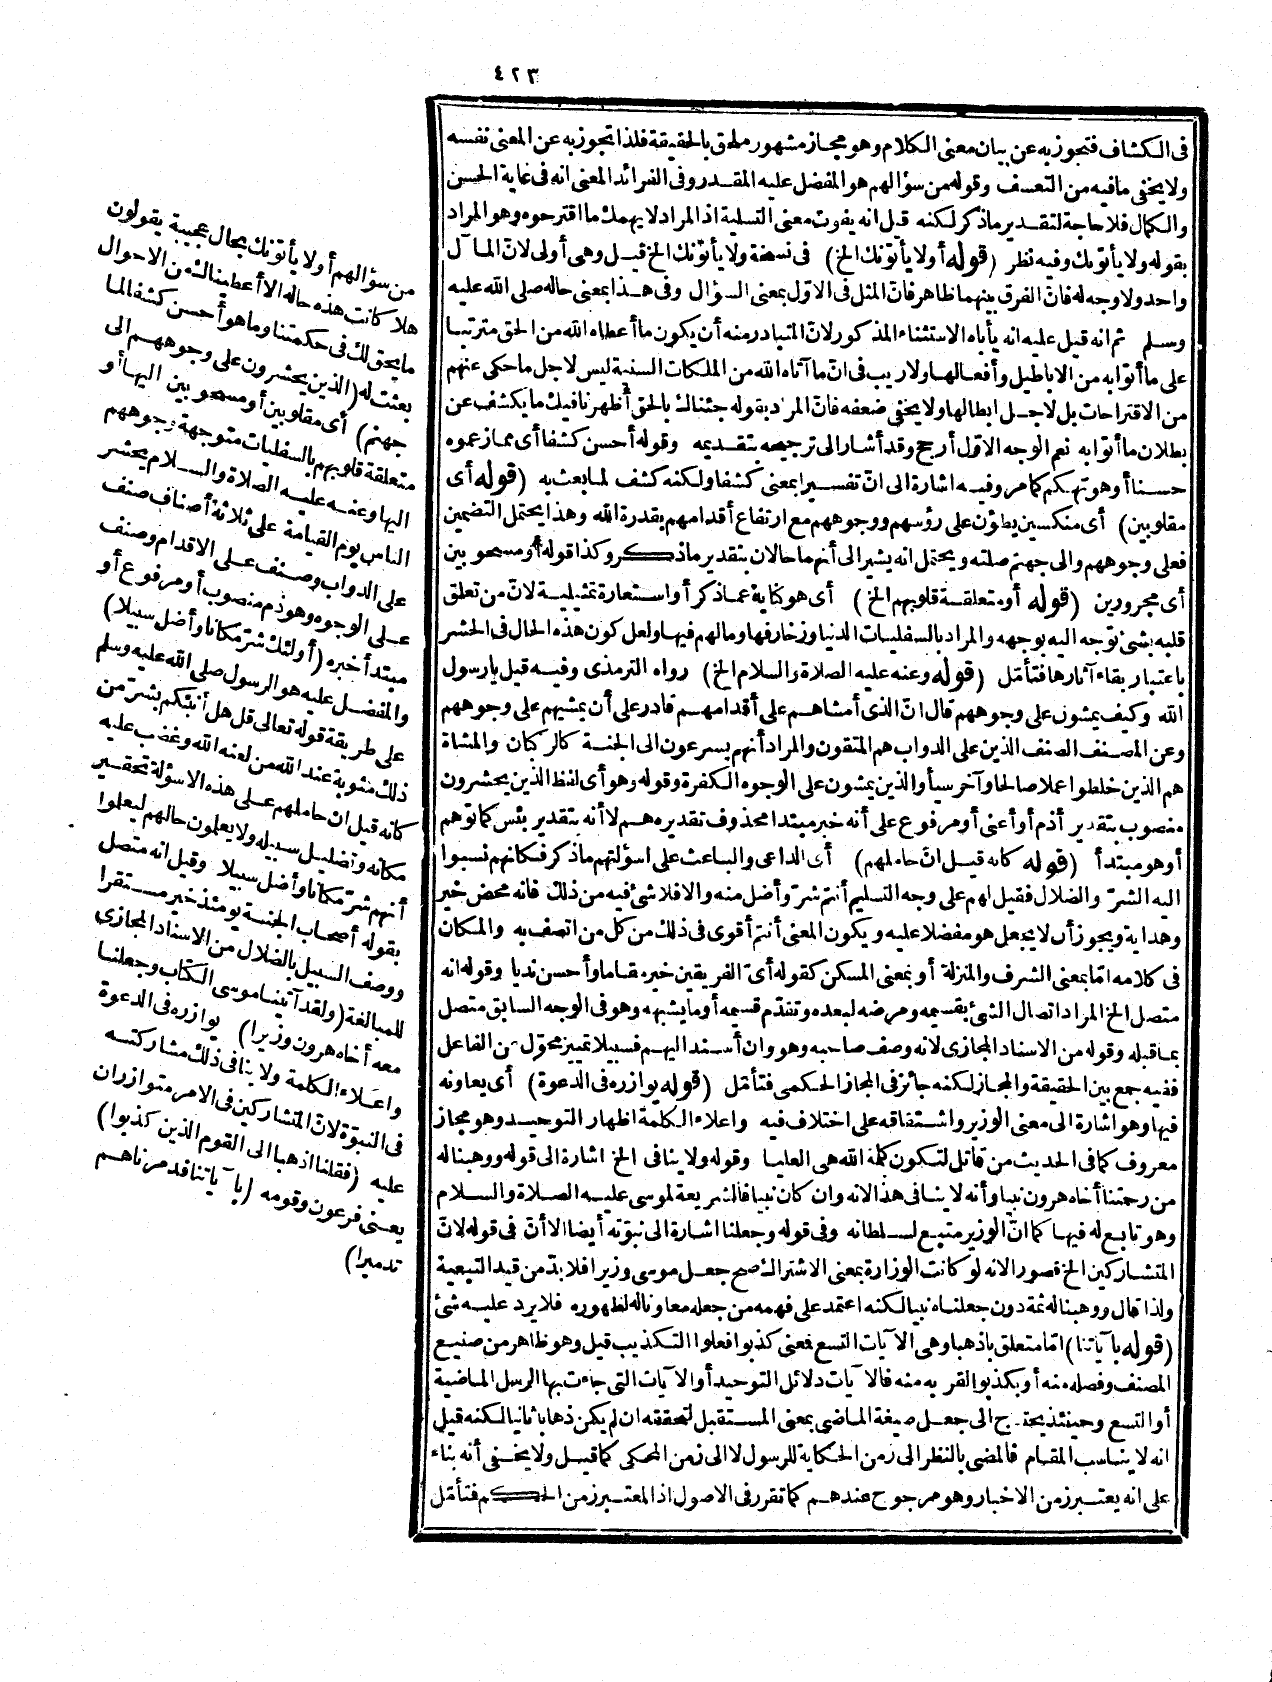 ٤٢٣
فى الكشاف فتجوز به عن بيان معنى الكلام وهو مجاز مشهور ملحق بالحقيقة فلذا تجوز به عن المعنى نفسه
ولا يخفى ما فيه من التعسف وقوله من سؤالهم هو المفضل عليه المقدر وفى الفرائد المعنى انه فى غاية الحسن
والكمال فلا حاجة لتقدير ما ذكر لكنه قيل انه يفوت معنى التسلية اذ المراد لا يهمك ما اقترحوه وهو المراد
بقوله ولا يأتونك وفيه نظر (قوله أو لا يأتونك الخ) فى نسخة ولا يأتونك الخ قيل وهى أولى لانّ المآل
واحد ولا وجه له فانّ الفرق بينهما ظاهر فانّ المثل فى الاوّل بمعنى السؤال وفى هذا بمعنى حاله صلى الله عليه
وسلم ثم انه قيل عليه انه يأباه الاستثناء المذكور لانّ المتبادر منه أن يكون ما أعطاه الله من الحق مترتبا
على ما أتوا به من الاباطيل وأفعالها ولا ريب فى انّ ما آتاه الله من الملكات السنية ليس لاجل ما حكى عنهم
من الاقتراحات بل لاجل ابطالها ولا يخفى ضعفه فانّ المراد بقوله جئناك بالحق أظهرنا فيك ما يكشف عن
بطلان ما أتوا به نعم الوجه الاول أرجح وقد أشار الى ترجيحه بتقديمه وقوله أحسن كشفا أى مما زعموه
حسنا أو هو تهكم كما مر وفيه اشارة الى انّ تفسيرا بمعنى كشفا ولكنه كشف لما بعث به (قوله أى
مقلوبين) أى منكسين يطؤن على رؤسهم ووجوههم مع ارتفاع أقدامهم بقدرة الله وهذا يحتمل التضمين
فعلى وجوههم والى جهنم صلته ويحتمل انه يشير الى أنهما حالان بتقدير ما ذكر وكذا قوله أو مسحوبين
أى مجرورين (قوله أو متعلقة قلوبهم الخ) أى هو كناية عما ذكر أو استعارة تمثيلية لانّ من تعلق
قلبه بشئ توجه اليه بوجهه والمراد بالسفليات الدنيا وزخارفها ومالهم فيها ولعل كون هذه الحال فى الحشر
باعتبار بقاء آثارها فتأمّل (قوله وعنه عليه الصلاة والسلام الخ) رواه الترمذى وفيه قيل يا رسول
الله وكيف يمشون على وجوههم قال انّ الذى أمشاهم على أقدامهم قادر على أن يمشيهم على وجوههم
وعن المصنف الصنف الذين على الدواب هم المتقون والمراد أنهم يسرعون الى الجنة كالركبان والمشاة
هم الذين خلطوا عملا صالحا وآخر سيأ والذين يمشون على الوجوه الكفرة وقوله وهو أى لفظ الذين يحشرون
منصوب بتقدير أذم أو أعنى أو مرفوع على أنه خبر مبتدا محذوف تقديره هم لا أنه بتقدير بئس كما توهم
أو هو مبتدأ (قوله كانه قيل انّ حاملهم) أى الداعى والباعث على اسؤلتهم ما ذكر فكانهم نسبوا
اليه الشرّ والضلال فقيل لهم على وجه التسليم أنتم شرّ وأضل منه والا فلا شئ فيه من ذلك فانه محض خير
وهداية ويجوز أن لا يجعل هو مفضلا عليه ويكون المعنى أنتم أقوى فى ذلك من كل من اتصف به والمكان
فى كلامه امّا بمعنى الشرف والمنزلة أو بمعنى المسكن كقوله أىّ الفريقين خير مقاما وأحسن نديا وقوله انه
متصل الخ المراد اتصال الشئ بقسيمه ومرضه لبعده وتقدّم قسيمه أو ما يشبهه وهو فى الوجه السابق متصل
بما قبله وقوله من الاسناد المجازى لانه وصف صاحبه وهو وان أسند اليهم فسبيلا تمييز محوّل من الفاعل
ففيه جمع بين الحقيقة والمجاز لكنه جائز فى المجاز الحكمى فتأمّل (قوله يوازره فى الدعوة) أى يعاونه
فيها وهو اشارة الى معنى الوزير واشتقاقه على اختلاف فيه واعلاء الكلمة اظهار التوحيد وهو مجاز
معروف كما فى الحديث من قاتل لتكون كلمة الله هى العليا وقوله ولا ينافى الخ اشارة الى قوله ووهبنا له
من رحمتنا أخاه هرون نبيا وأنه لا ينافى هذا لانه وان كان نبيا فالشريعة لموسى عليه الصلاة والسلام
وهو تابع له فيها كما انّ الوزير متبع لسلطانه وفى قوله وجعلنا اشارة الى نبوّته أيضا الا أنّ فى قوله لانّ
المتشاركين الخ قصورا لانه لو كانت الوزارة بمعنى الاشتراك صح جعل موسى وزيرا فلا بدّ من قيد التبعية
ولذا قال ووهبنا له ثمة دون جعلناه نبيا لكنه اعتمد على فهمه من جعله معاونا له لظهوره فلا يرد عليه شئ
(قوله بآياتنا) امّا متعلق باذهبا وهى الآيات التسع فمعنى كذبوا فعلوا التكذيب قيل وهو ظاهر من صنيع
المصنف وفصله منه أو بكذبوا القربه منه فالآيات دلائل التوحيد أو الآيات التى جاءت بها الرسل الماضية
أو التسع وحينئذ يحتاج الى جعل صيغة الماضى بمعنى المستقبل لتحققه ان لم يكن ذهابا ثانيا لكنه قيل
انه لا يناسب المقام فالمضى بالنظر الى زمن الحكاية للرسول لا الى زمن المحكى كما قيل ولا يخفى أنه بناء
على انه يعتبر زمن الاخبار وهو مرجوح عندهم كما تقرر فى الاصول اذ المعتبر زمن الحكم فتأمّل
من سؤالهم أو لا يأتونك بحال عجيبة يقولون
هلا كانت هذه حاله الا أعطيناك من الاحوال
ما يحق لك فى حكمتنا وما هو أحسن كشفا لما
بعثت له (الذين يحشرون على وجوههم الى
جهنم) أى مقلوبين أو مسحوبين اليها أو
متعلقة قلوبهم بالسفليات متوجهة وجوههم
اليها وعنه عليه الصلاة والسلام يحشر
الناس يوم القيامة على ثلاثة أصناف صنف
على الدواب وصنف على الاقدام وصنف
على الوجوه وهو ذم منصوب أو مرفوع أو
مبتدأ خبره (أولئك شرّ مكانا وأضل سبيلا)
والمفضل عليه هو الرسول صلى الله عليه وسلم
على طريقة قوله تعالى قل هل أنبئكم بشرّ من
ذلك مثوبة عند الله من لعنه الله وغضب عليه
كانه قيل ان حاملهم على هذه الاسؤلة تحقير
مكانه وتضليل سبيله ولا يعلمون حالهم ليعلموا
أنهم شرّ مكانا وأضل سبيلا وقيل انه متصل
بقوله أصحاب الجنة يومئذ خير مستقرا
ووصف السبيل بالضلال من الاسناد المجازى
للمبالغة (ولقد آتينا موسى الكتاب وجعلنا
معه أخاه هرون وزيرا) يوازره فى الدعوة
واعلاء الكلمة ولا ينافى ذلك مشاركته
فى النبوّة لانّ المتشاركين فى الامر متوازران
عليه (فقلنا اذهبا الى القوم الذين كذبوا)
يعنى فرعون وقومه (بآياتنا فدمرناهم
تدميرا)